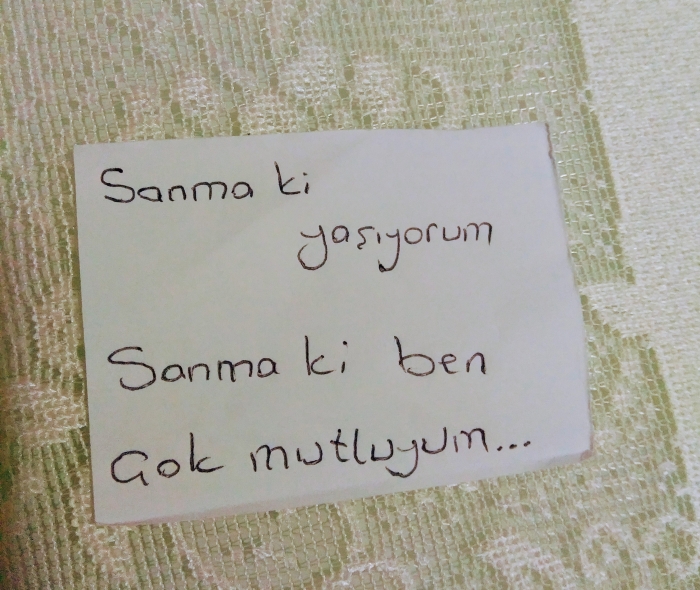 Sanma ki
yaşıyorum
Sanma ki ben
Çok mutluyum...